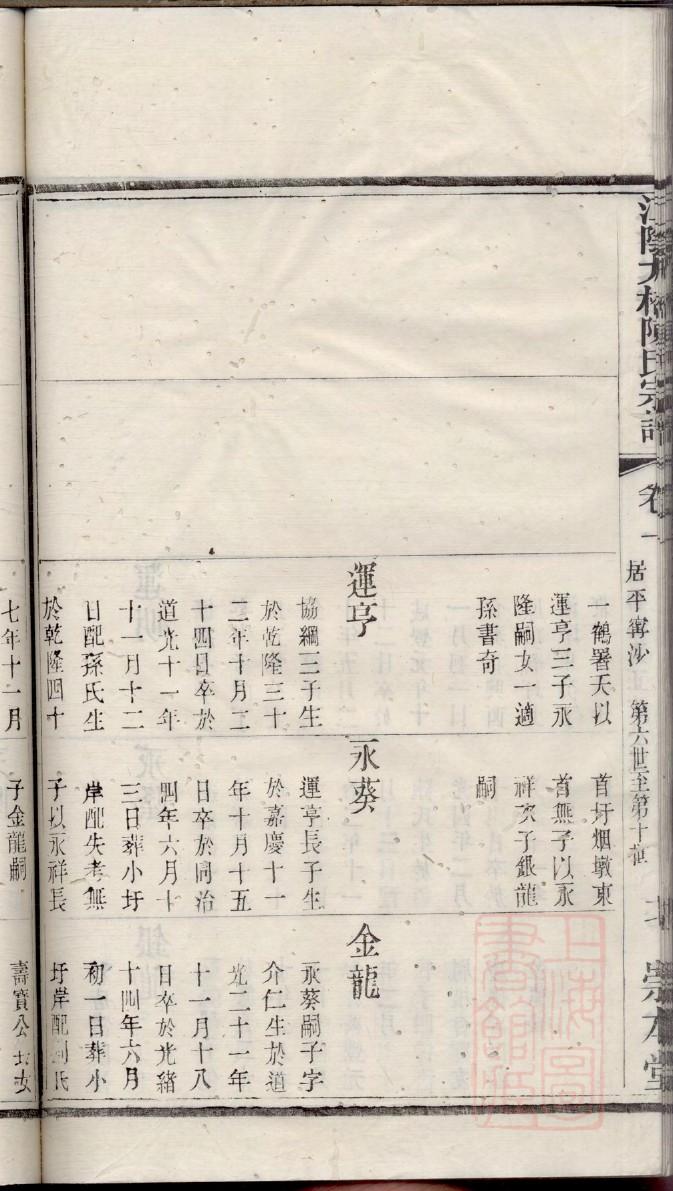 江陰大橋陳氏宗譜
卷一
居平甯沙 第六世至第十
崇本堂
一鶴署天以
運亨三子永
隆嗣女一適
孫書奇
運亨
協綱三子生
於乾隆三十
二年十月二
十四日卒於
道光十一年
十一月十二
日配孫氏生
於乾隆四十
七年十一月
首圩烟墩東
首無子以永
祥次子銀龍
嗣
永葵
運亨長子生
於嘉慶十一
年十月十五
日卒於同治
四年六月十
三日葬小圩
岸配失考無
子以永祥長
子金龍嗣
金龍
永葵嗣子字
介仁生於道
光二十一年
十一月十八
日卒於光緒
十四年六月
初一日葬小
圩岸配劉氏
壽寶公長女
上海圖書館藏